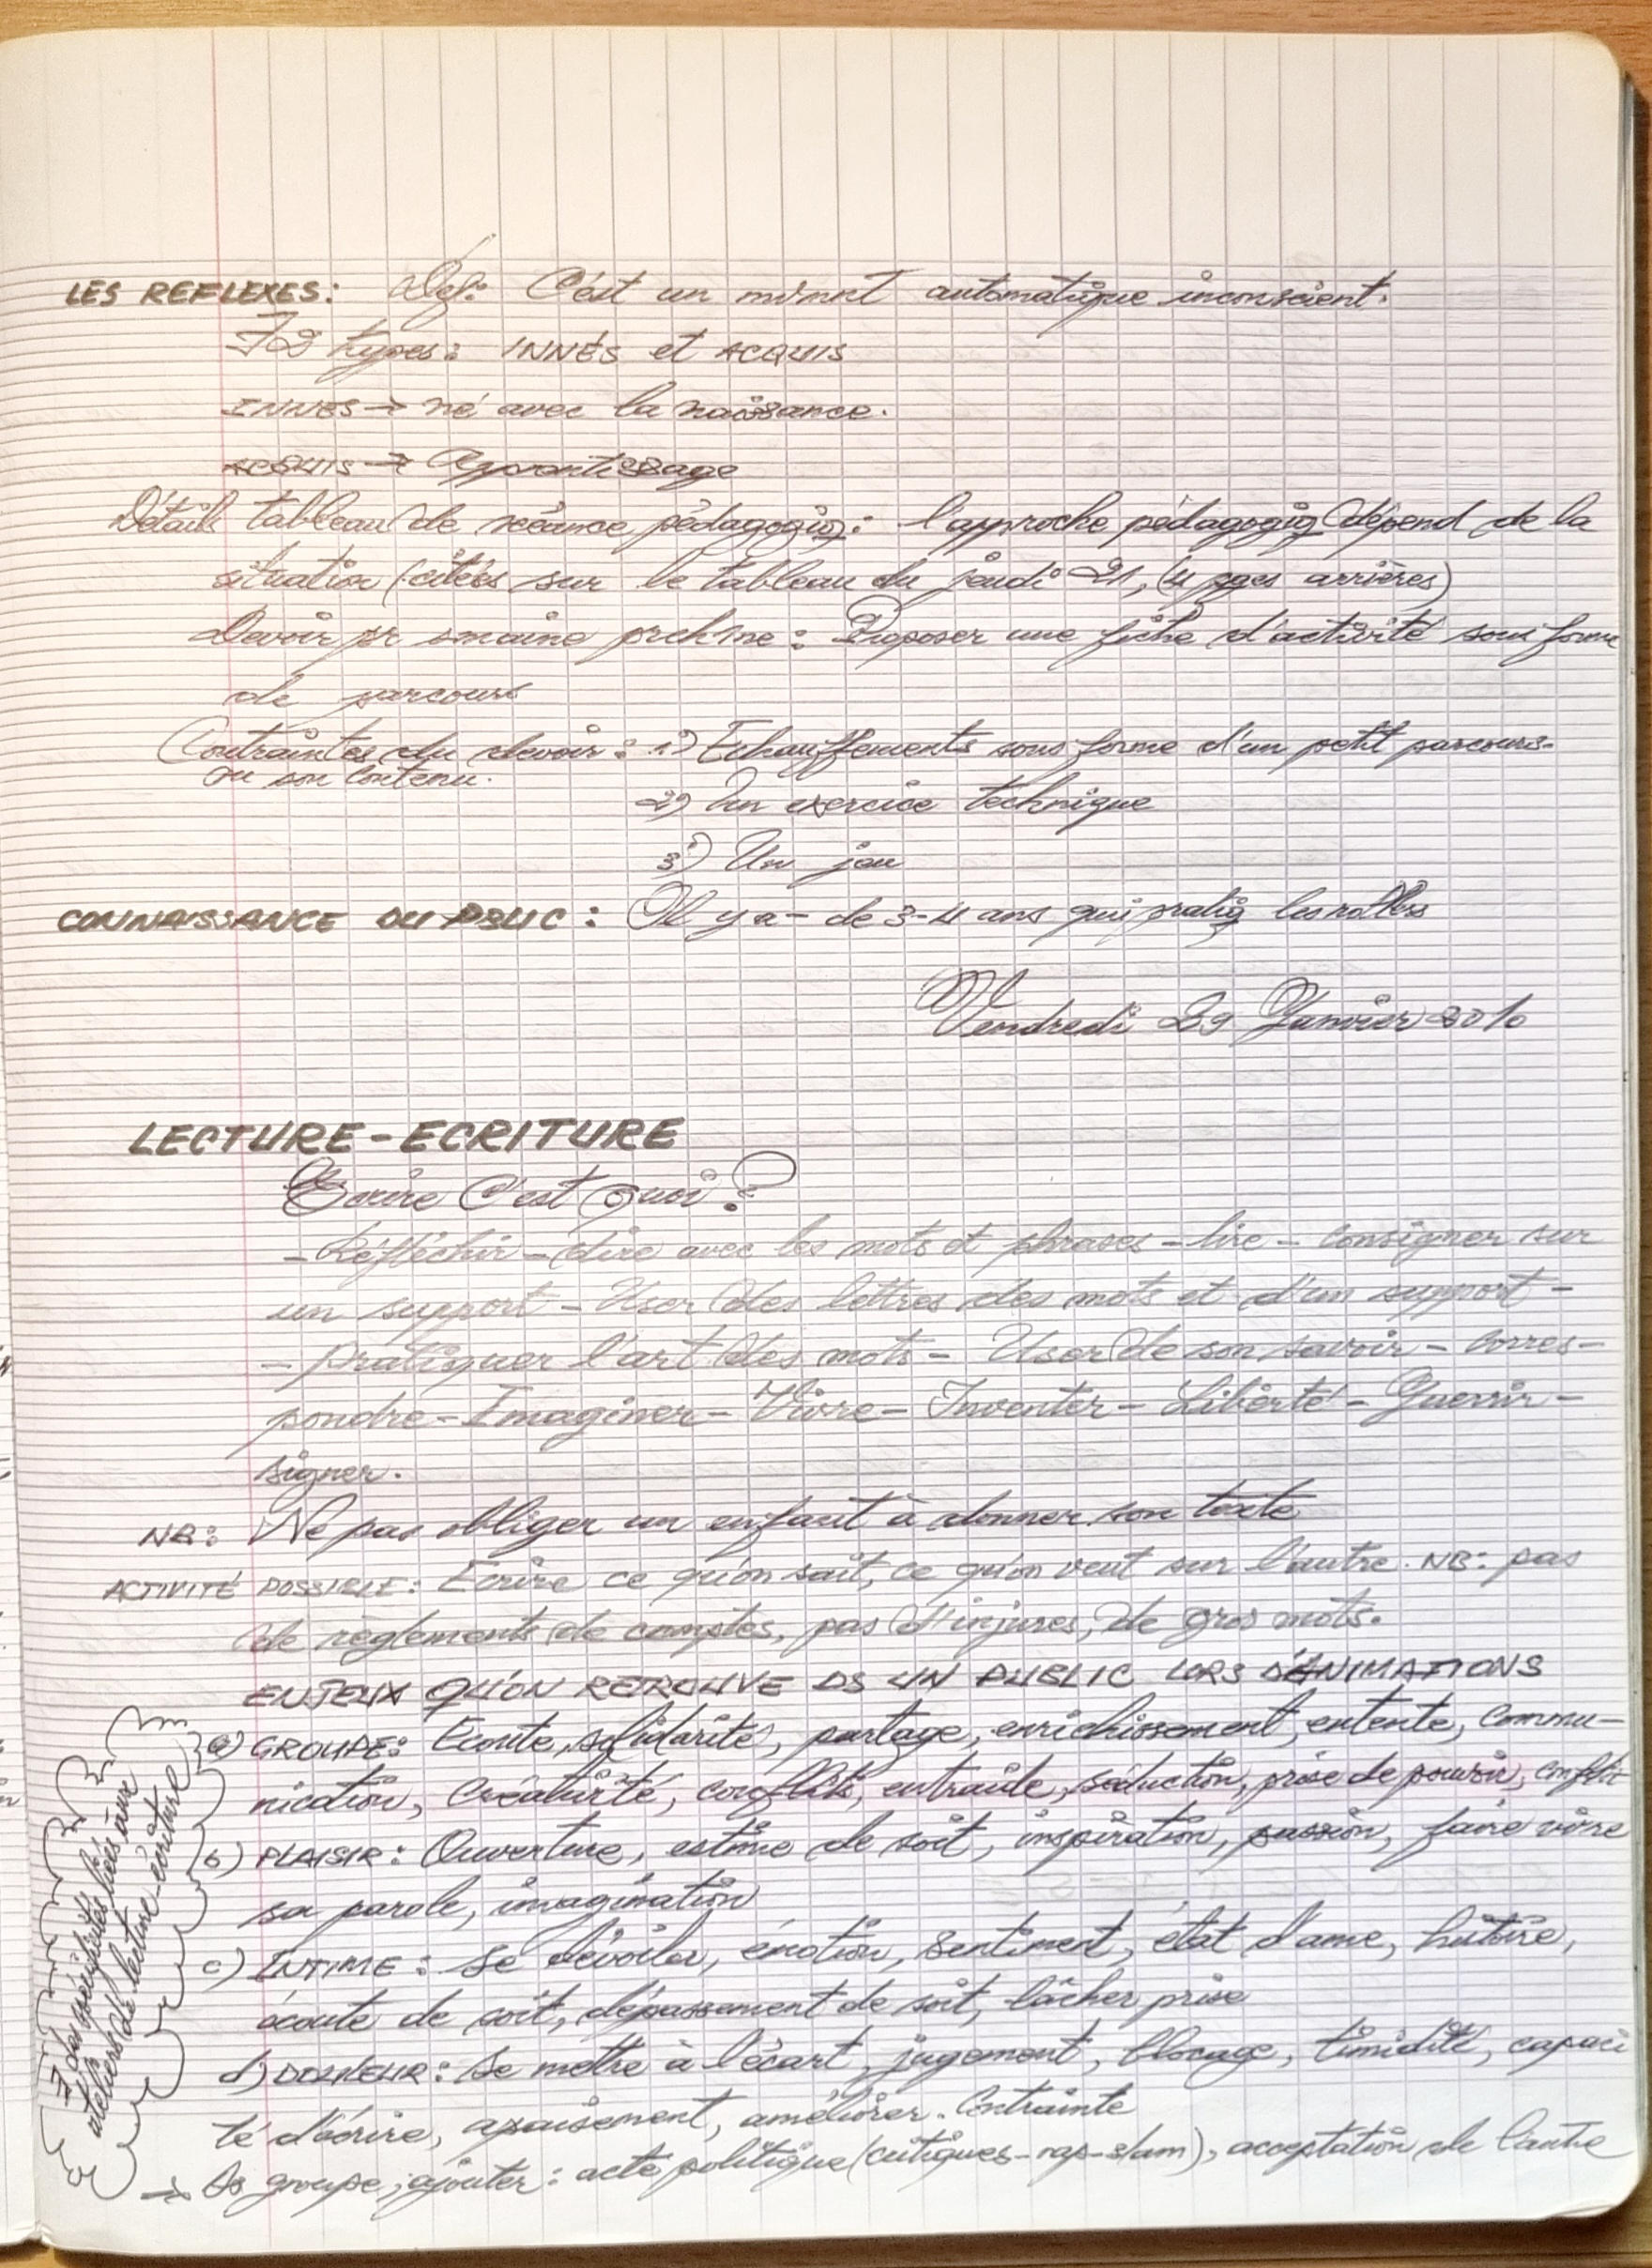 LES REFLEXES: Def: C'est un mvmnt automatique inconscient.
∃ 2 types: INNÉS et ACQUIS
INNES → né avec la naissance.
ACQUIS → Apprentissage
Détails tableau de séance pédagogiq: l'approche pédagogiq dépend de la
situation (citées sur le tableau du jeudi 21, (4 pges arrières)
Devoir pr smaine prchne: Proposer une fiche d'activité sous forme
de parcours
Contraintes du devoir: 1°) Echauffements sous forme d'un petit parcours.
ou son contenu.
2°) Un exercice technique
3°) Un jeu
CONNAISSANCE DU PBLIC: Il y a - de 3-4 ans qui pratiq les rollers
Vendredi 29 Janvier 2010
LECTURE-ECRITURE
Ecrire C'est Quoi?
- Réfléchir - dire avec les mots et phrases - lire - consigner sur
un support - User des lettres des mots et d'un support -
- pratiquer l'art des mots - User de son savoir - Corres-
pondre - Imaginer - Vivre - Inventer - Liberté - Guerrir -
signer.
NB: Ne pas obliger un enfant à donner son texte
ACTIVITÉ POSSIBLE: Ecrire ce qu'on sait, ce qu'on veut sur l'autre. NB: pas
de règlements de comptes, pas d'injures, de gros mots.
ENJEUX QU'ON RETROUVE DS UN PUBLIC LORS D'ANIMATIONS
a) GROUPE: Ecoute, solidarité, partage, enrichissement, entente, Commu-
nication, Créativité, conflits, entraide, séduction, prise de pouvoir, conflit
b) PLAISIR: Ouverture, estime de soit, inspiration, passion, faire vivre
sa parole, imagination
c) INTIME: se dévoiler, émotion, sentiment, état d'ame, histoire,
écoute de soit, dépassement de soit, lâcher prise
d) DOULEUR: se mettre à l'écart, jugement, blocage, timidité, capaci
té d'écrire, apaisement, améliorer. Contrainte
→ Ds groupe, ajouter: acte politique (critiques-rap-slam), acceptation de l'autre
∃ des spécificités liées aux
ateliers de lecture-écriture